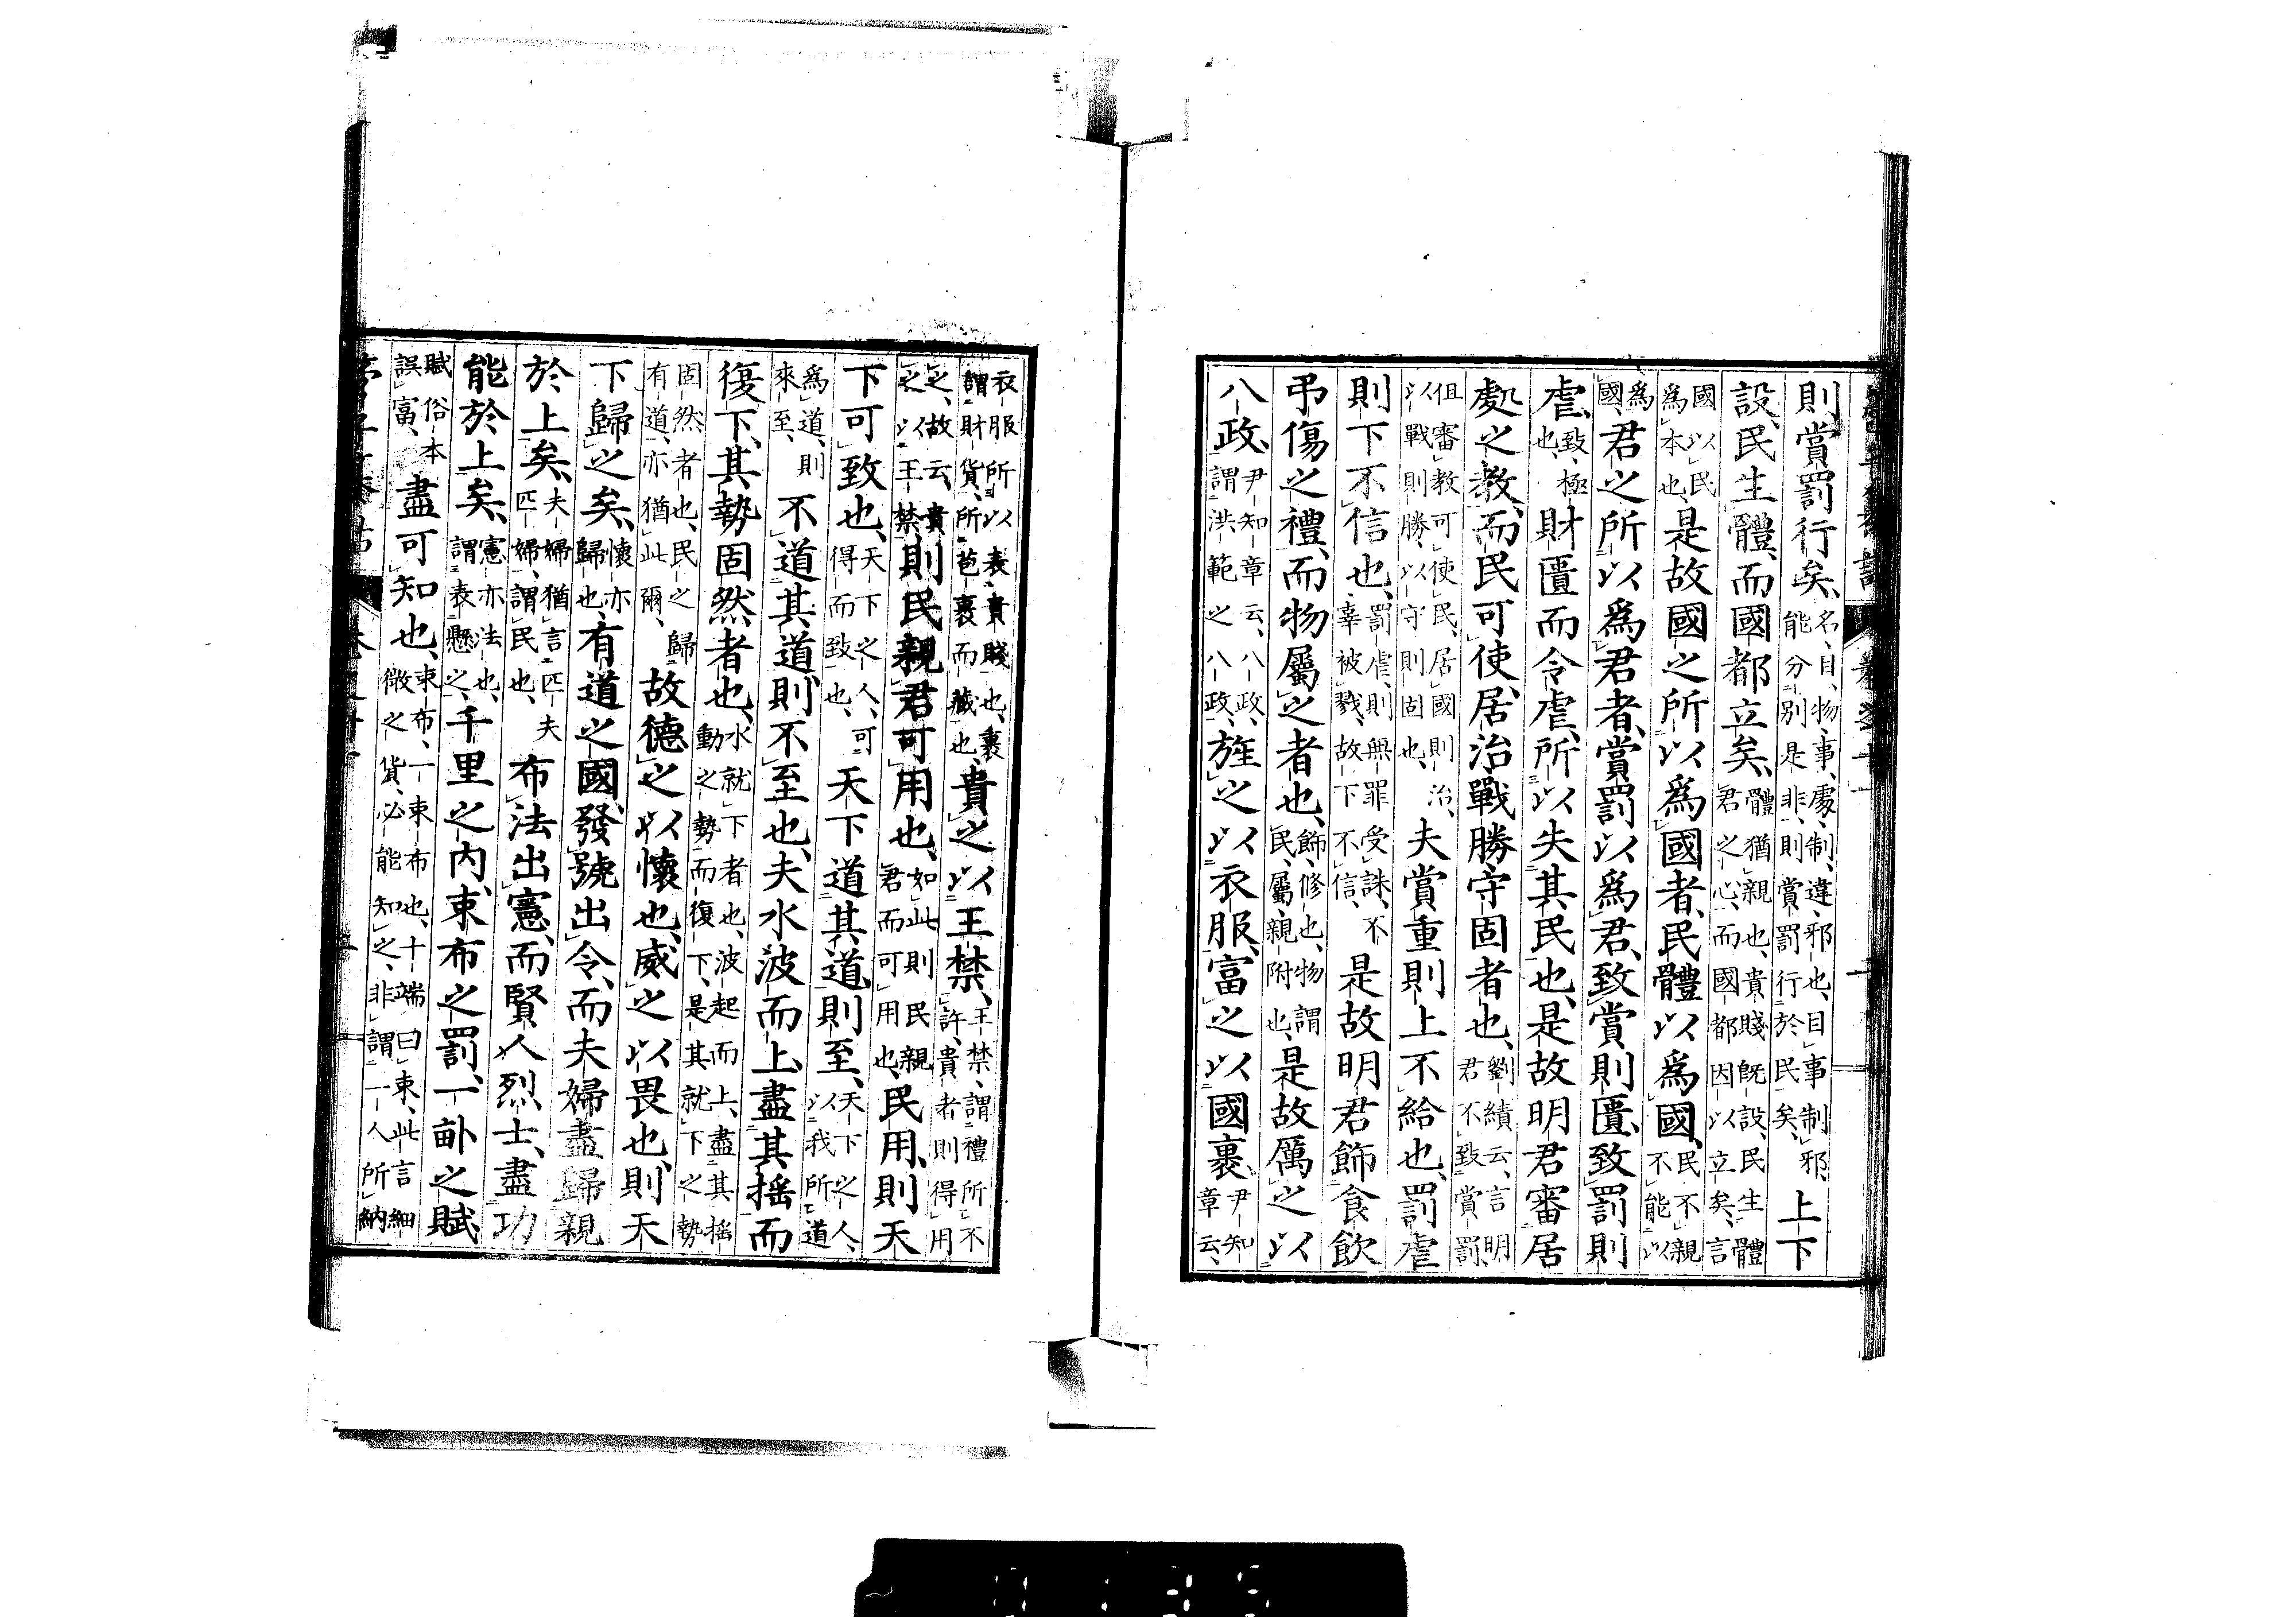 則賞罰行矣、名、目、物、事、處、制、違、邪也、目事制邪、能分別是非、則賞罰行於民矣、上下
設、民生體、而國都立矣、體猶親也、貴賤既設、民生體君之心、而國都因以立矣、言
國以民爲本也、是故國之所以爲國者、民體以爲國、民不親不能以
爲國、君之所以爲君者、賞罰以爲君、致賞則匱、致罰則
虐、致、極也、財匱而令虐、所以失其民也、是故明君審居
處之教、而民可使居治戰勝守固者也、劉績云、言明君不致賞罰、
但審教可使民、居國則治、以戰則勝、以守則固也、夫賞重則上不給也、罰虐
則下不信也、罰虐、則無罪受誅、不辜被戮、故下不信、是故明君飾食飲
弔傷之禮、而物屬之者也、飾、修也、物謂民、屬、親附也、是故厲之以
八政、尹知章云、八政、謂洪範之八政、旌之以衣服、富之以國裹、尹知章云、
衣服所以表貴賤也、裹謂財貨、所苞裹而藏也、貴之以王禁、王禁、謂禮所不許、貴者則得用
之、故云、貴之以王禁則民親君可用也、如此則民親君而可用也、民用、則天
下可致也、天下之人、可得而致也、天下道其道、則至、天下之人、以我所道
爲道、則來至、不道其道、則不至也、夫水波而上、盡其搖而
復下、其勢固然者也、水就下者也、波起而上、盡其搖動之勢而復下、是其就下之勢
固然者也、民之歸有道、亦猶此爾、故德之以懷也、威之以畏也、則天
下歸之矣、懷亦歸也、有道之國、發號出令、而夫婦盡歸親
於上矣、夫婦猶言匹夫匹婦、謂民也、布法出憲、而賢人烈士、盡功
能於上矣、憲亦法也、謂表懸之、千里之内、束布之罰、一畝之賦、
賦俗本誤富、盡可知也、束布、一束布也、十端曰束、此言細微之貨、必能知之、非謂一一人所納